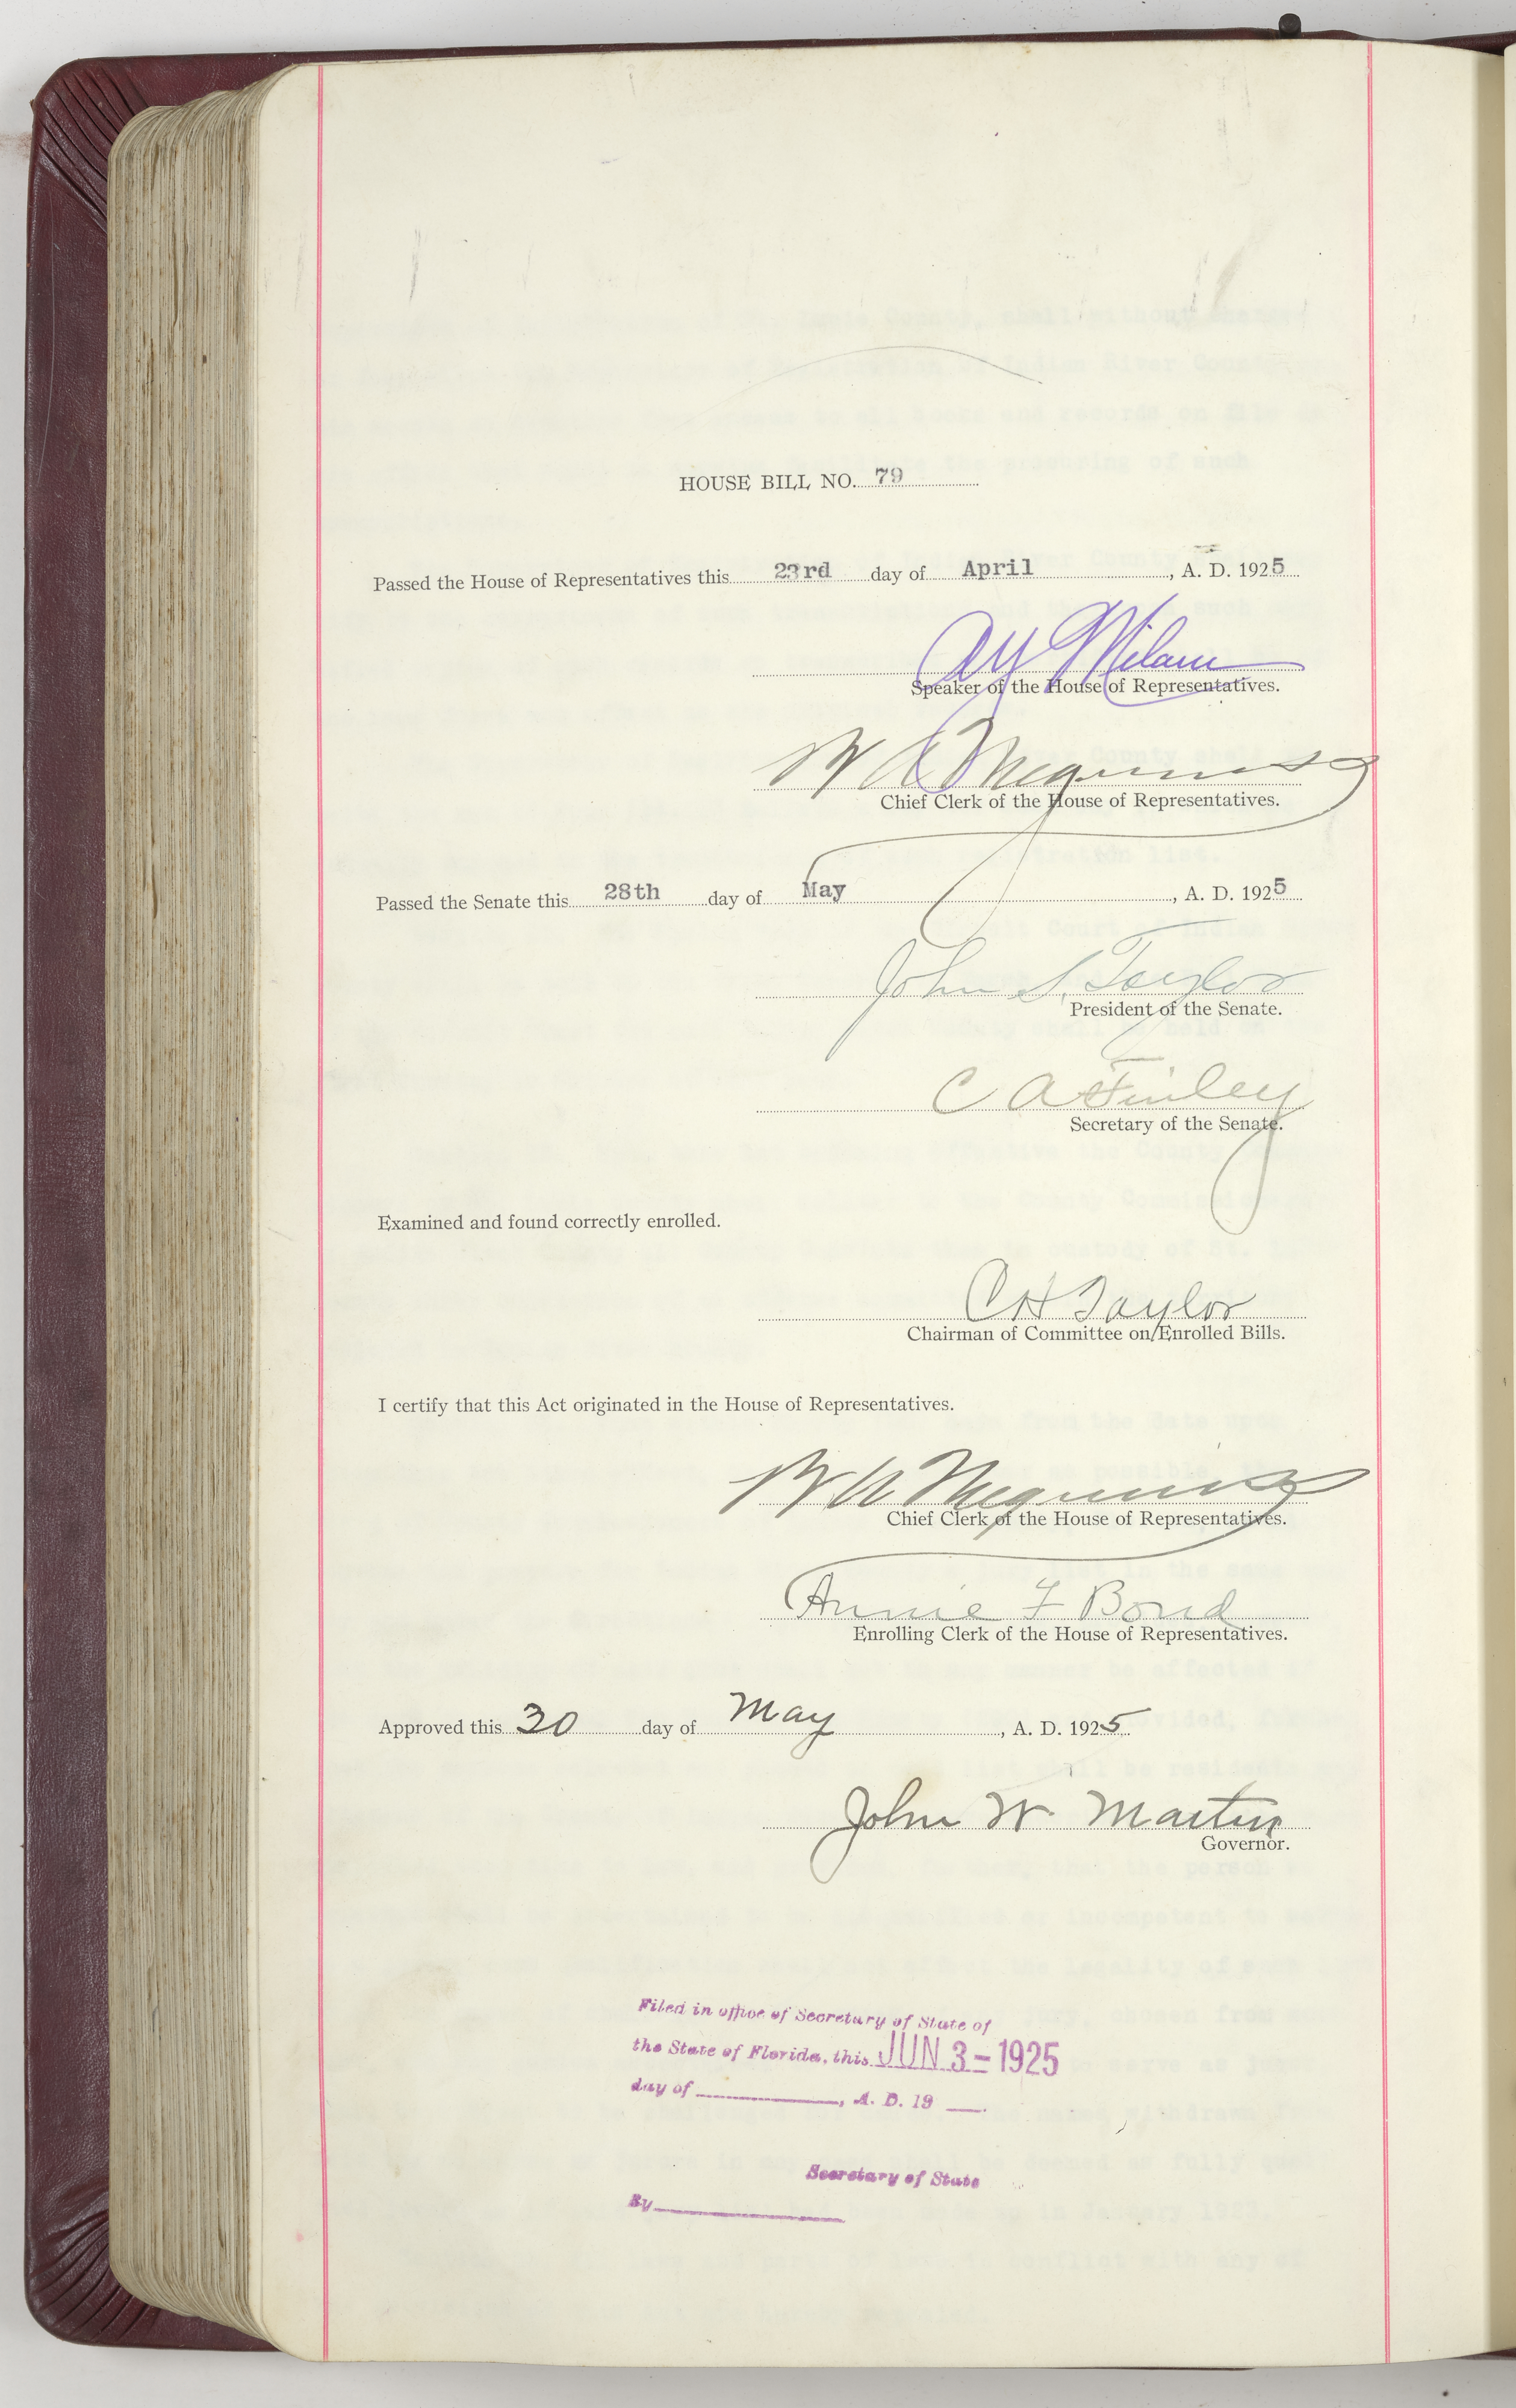 HOUSE BILL NO. 79
Passed the House of Representatives this 23rd day of April, A. D. 1925
A Y Milam
Speaker of the House of Representatives.
Chief Clerk of the House of Representatives.
Passed the Senate this 28th day of May, A. D. 1925
John S. Taylor
President of the Senate.
C A Finley
Secretary of the Senate.
Examined and found correctly enrolled.
C H Taylor
Chairman of Committee on Enrolled Bills.
I certify that this Act originated in the House of Representatives.
Chief Clerk of the House of Representatives.
Annie F Bond
Enrolling Clerk of the House of Representatives.
Approved this 30 day of May, A. D. 1925
John W. Martin
Governor.
Filed in office of Secretary of State of
the State of Florida, this JUN 3 - 1925
day of , A. D. 19 .
Secretary of State
By